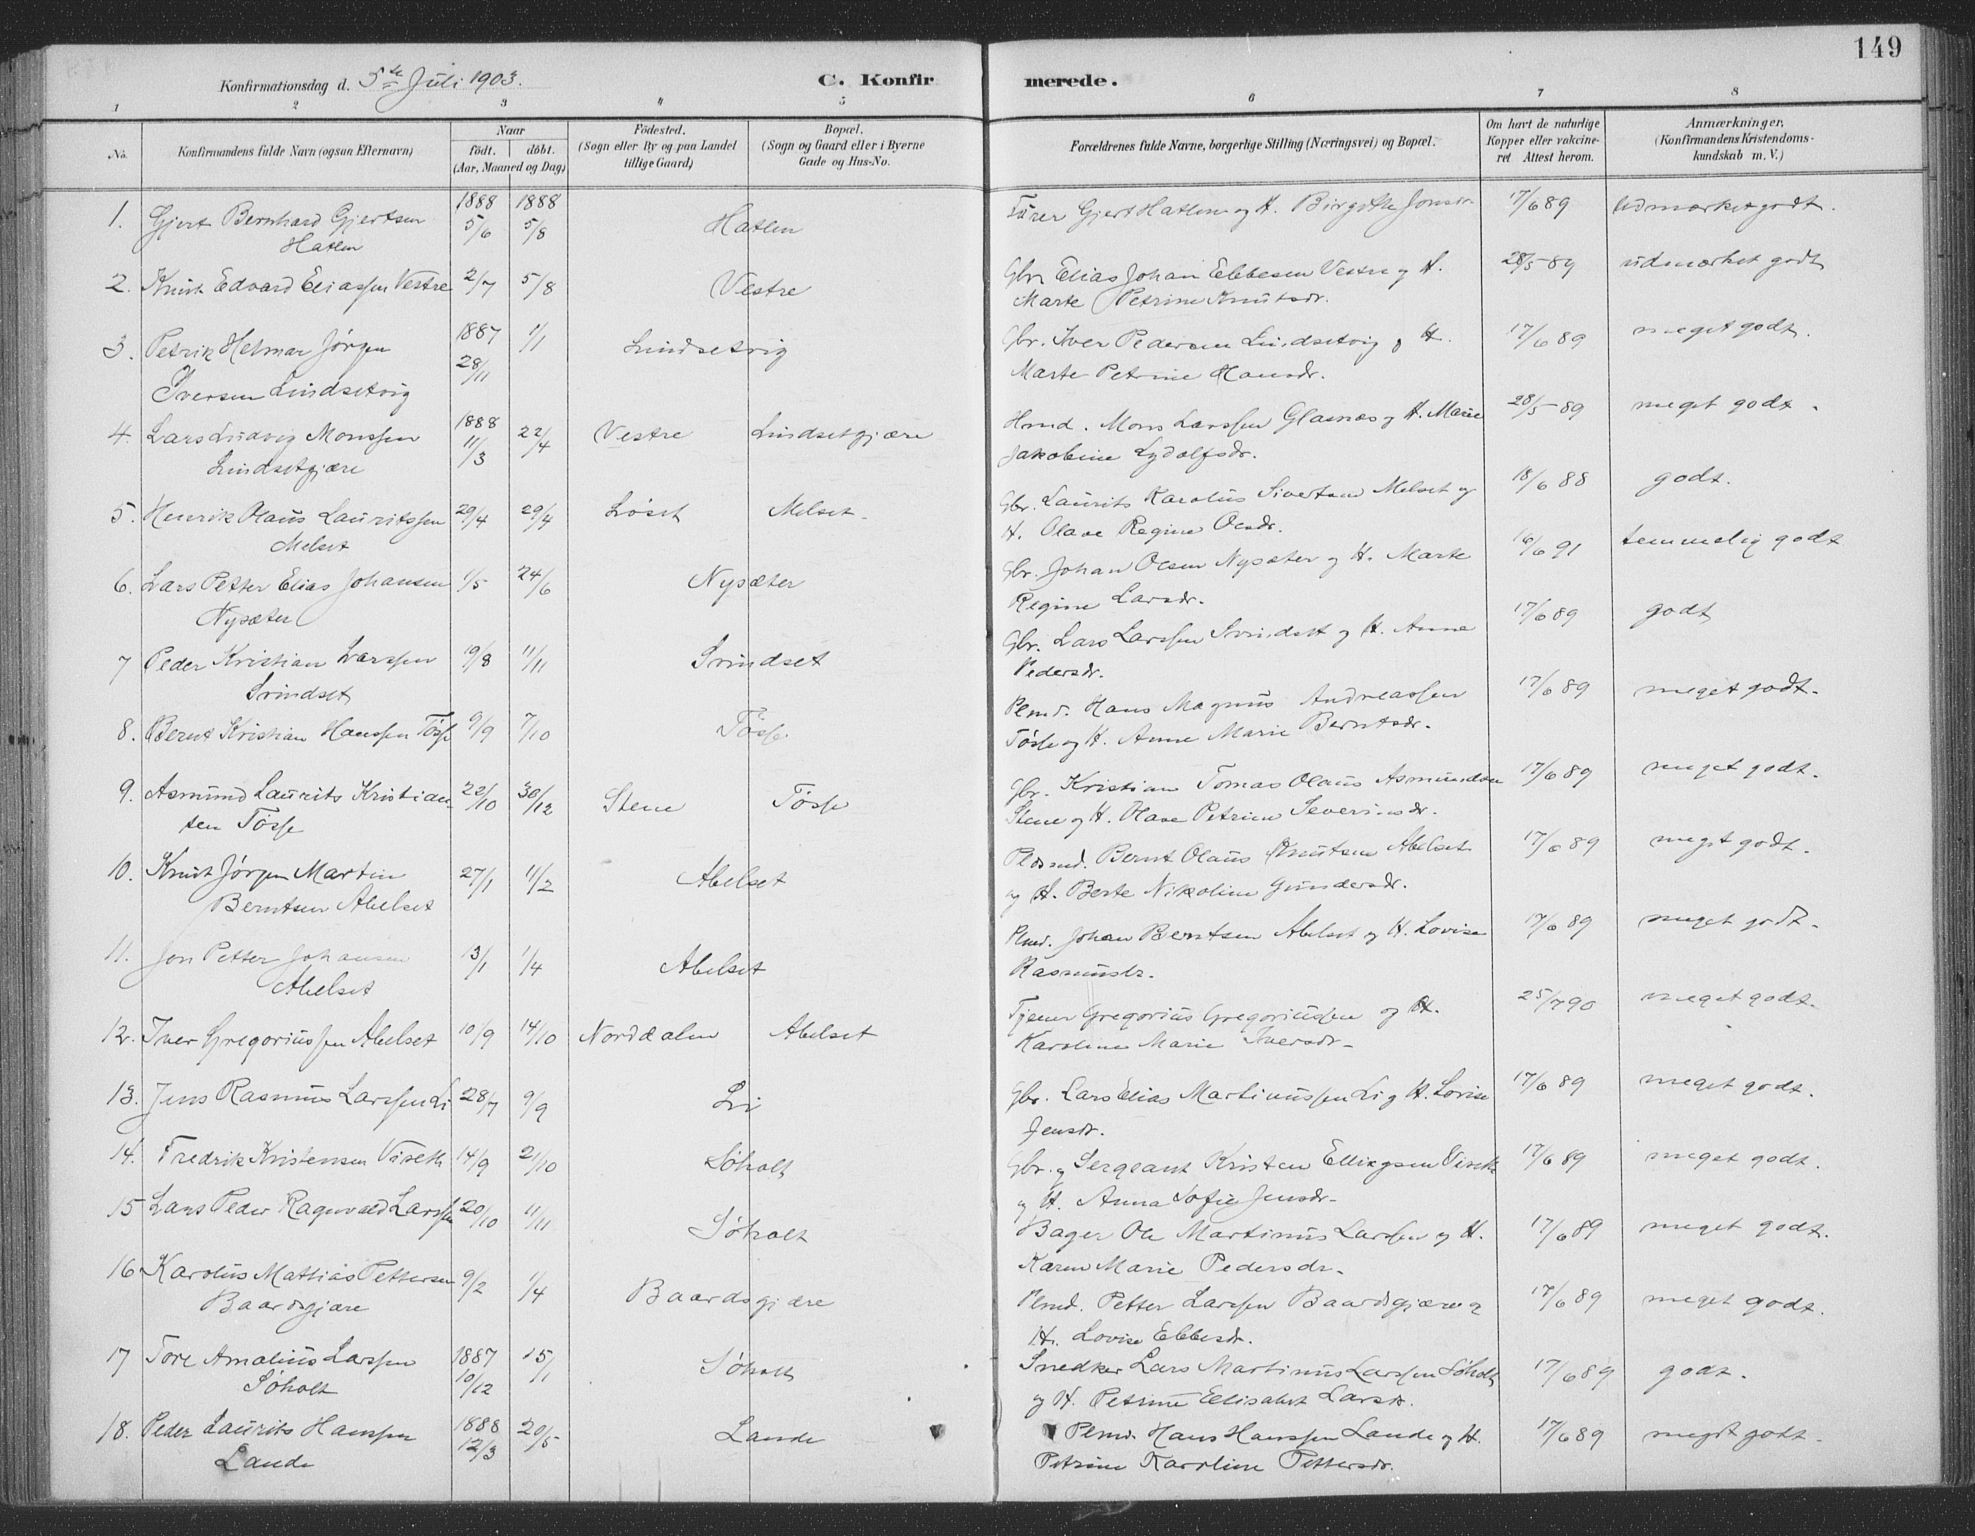 149
Konfirmationsdag d. 5te Juli 1903.
C. Konfirmerede.
1 2 3 4 5 6 7 8
No. Konfirmandens fulde Navn (ogsaa Efternavn) Naar födt. döbt. (Aar, Maaned og Dag) Födested. (Sogn eller By og paa Landet tillige Gaard) Bopæl. (Sogn og Gaard eller i Byerne Gade og Hus-No. Forældrenes fulde Navne, borgerlige Stilling (Næringsvei) og Bopæl. Om havt de naturlige Kopper eller vakcineret Attest herom. Anmærkninger. (Konfirmandens Kristendomskundskab m. V.)
1. Gjert Bernhard Gjertsen Hatlen 1888 5/6 1888 5/8 Hatlen Gjert Hatlen og H. Birgitte Jonsdr 17/6 89 udmærket godt.
2. Knut Edvard Eliassen Vestre 2/7 5/8 Vestre Gbr. Elias Johan Ebbesen Vestre og H. Marte Petrine Knutsdr. 28/5 89 udmærket godt
3. Petrik Helmar Jørgen Iversen Lindsetvig 1887 28/11 1/1 Lindsetvig Gbr. Iver Pedersen Lindsetvig og H. Marte Petrine Hansdr. 17/6 89 meget godt.
4. Lars Ludvig Monssen Lindsetgjære 1888 11/3 22/4 Vestre Lindsetgjære Hmd. Mons Larssen Glasnæs og H. Marie Jakobine Lydolfsdr. 28/5 89 meget godt.
5. Henrik Olaus Lauritssen Melset 29/4 Løset Melset Gbr. Laurits Karolus Sivertsen Melset og H. Olave Regine Olsdr. 18/6 88 godt.
6. Lars Petter Elias Johansen Nysæter 1/5 24/6 Nysæter Gbr. Johan Olsen Nysæter og H. Marte Regine Larsdr. 16/6 91 temmelig godt
7 Peder Kristian Larssen Svindset 19/8 11/11 Svindset Gbr. Lars Larssen Svindset og H. Anne Pedersdr. 17/6 89 godt
8. Bernt Kristian Hanssen Tøsse 9/9 7/10 Tøsse. Plmd. Hans Magnus Andreassen Tøsse og H. Anne Marie Berntsdr. 17/6 89 meget godt.
9. Asmund Laurits Kristiansen Tøsse 22/10 30/12 Stene Tøsse Gbr. Kristian Tomas Olaus Asmundsen Stene og H. Olave Petrine Severinsdr. 17/6 89 meget godt.
10. Knut Jørgen Martin Berntsen Abelset 27/1 11/2 Abelset Bernt Olaus Knutsen Abelset og H. Berte Nikoline Gundersdr. 17/6 89 meget godt.
11. Jon Petter Johansen Abelset 13/1 1/4 Abelset Plmd. Johan Berntsen Abelset og H. Lovise Rasmusdr. 17/6 89 meget godt.
12. Iver Gregoriussen Abelset 10/9 14/10 Norddalen Abelset Tjener Gregorius Gregoriussen og H. Karoline Marie Iversdr. 25/7 90 meget godt.
13. Jens Rasmus Larssen Li 28/7 9/9 Li Gbr. Lars Elias Martinussen Li og H. Lovise Jensdr. 17/6 89 meget godt.
14. Fredrik Kristensen Viseth 14/9 21/10 Søholt Gbr. og Sergeant Kristen Viseth og H. Anna Sofie Jensdr. 17/6 89 meget godt.
15 Lars Peder Ragnvald Larssen 20/10 11/11 Søholt Bager Ole Martinus Larssen og H. Karen Marie Pedersdr. 17/6 89 meget godt.
16 Karolus Mattias Pettersen Baardsgjære 9/2 1/4 Baardsgjære Plmd. Petter Larssen Baardsgjære og H. Lovise Ebbesdr. 17/6 89 meget godt.
17 Tore Amalius Larssen Søholt 1887 10/12 15/1 Søholt Snedker Lars Martinus Larssen Søholt og H. Petrine Elisabet Larsdr. 17/6 89 godt.
18. Peder Laurits Hanssen Lande 1888 12/3 20/5 Lande Plmd. Hans Hanssen Lande og H. Petrine Karoline Pettersdr. 17/6 89 meget godt.